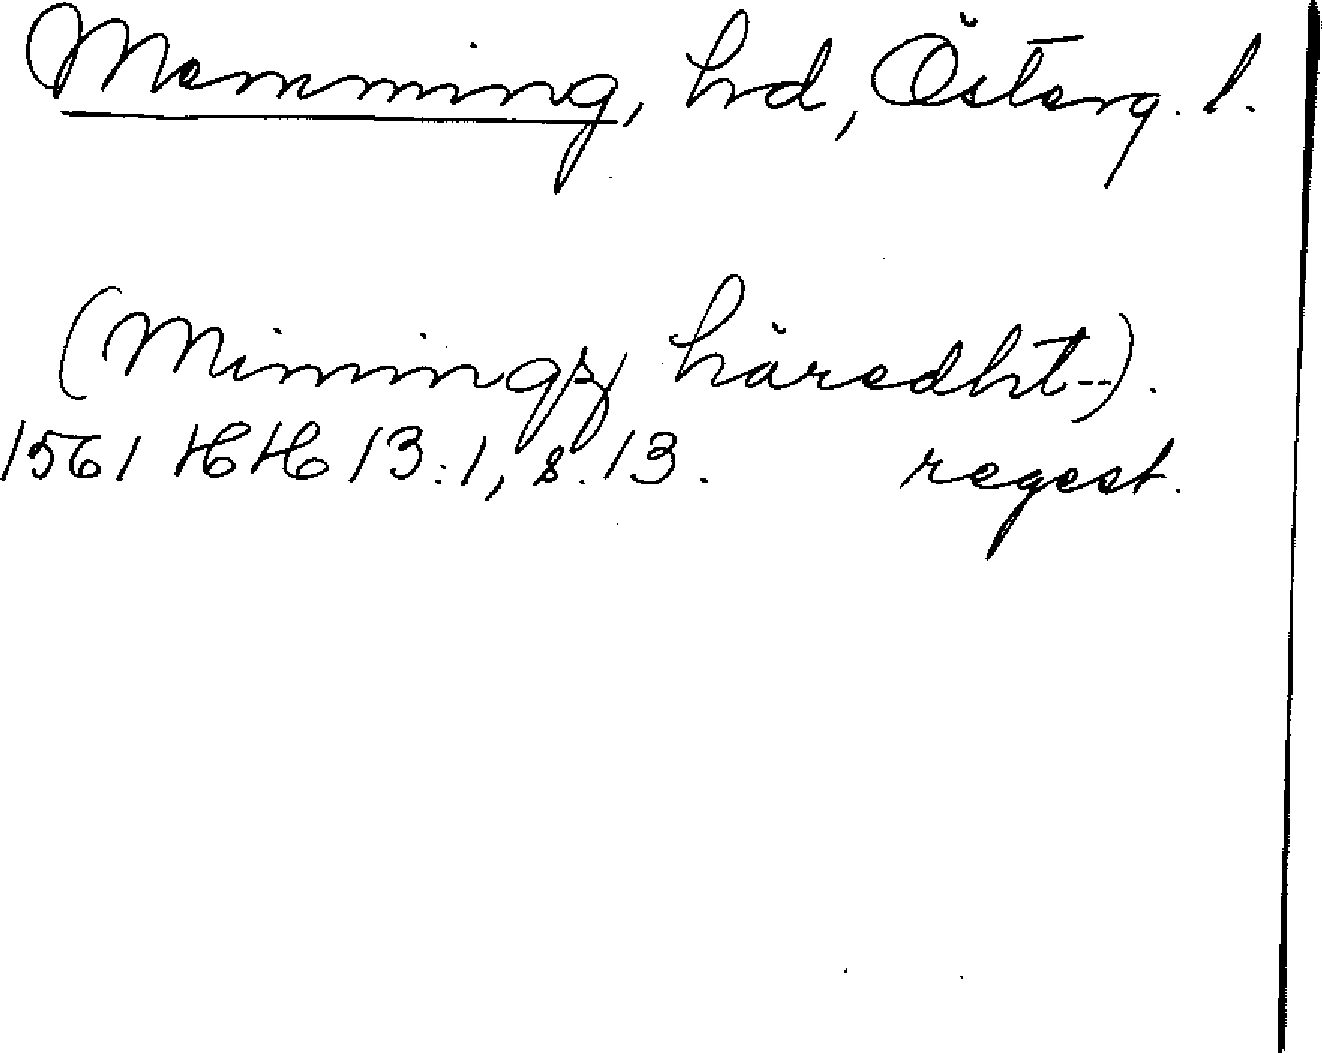 Memming, hd, Österg. l.
(Miningz häredht--).
1561 HH 13:1, s. 13. regest.